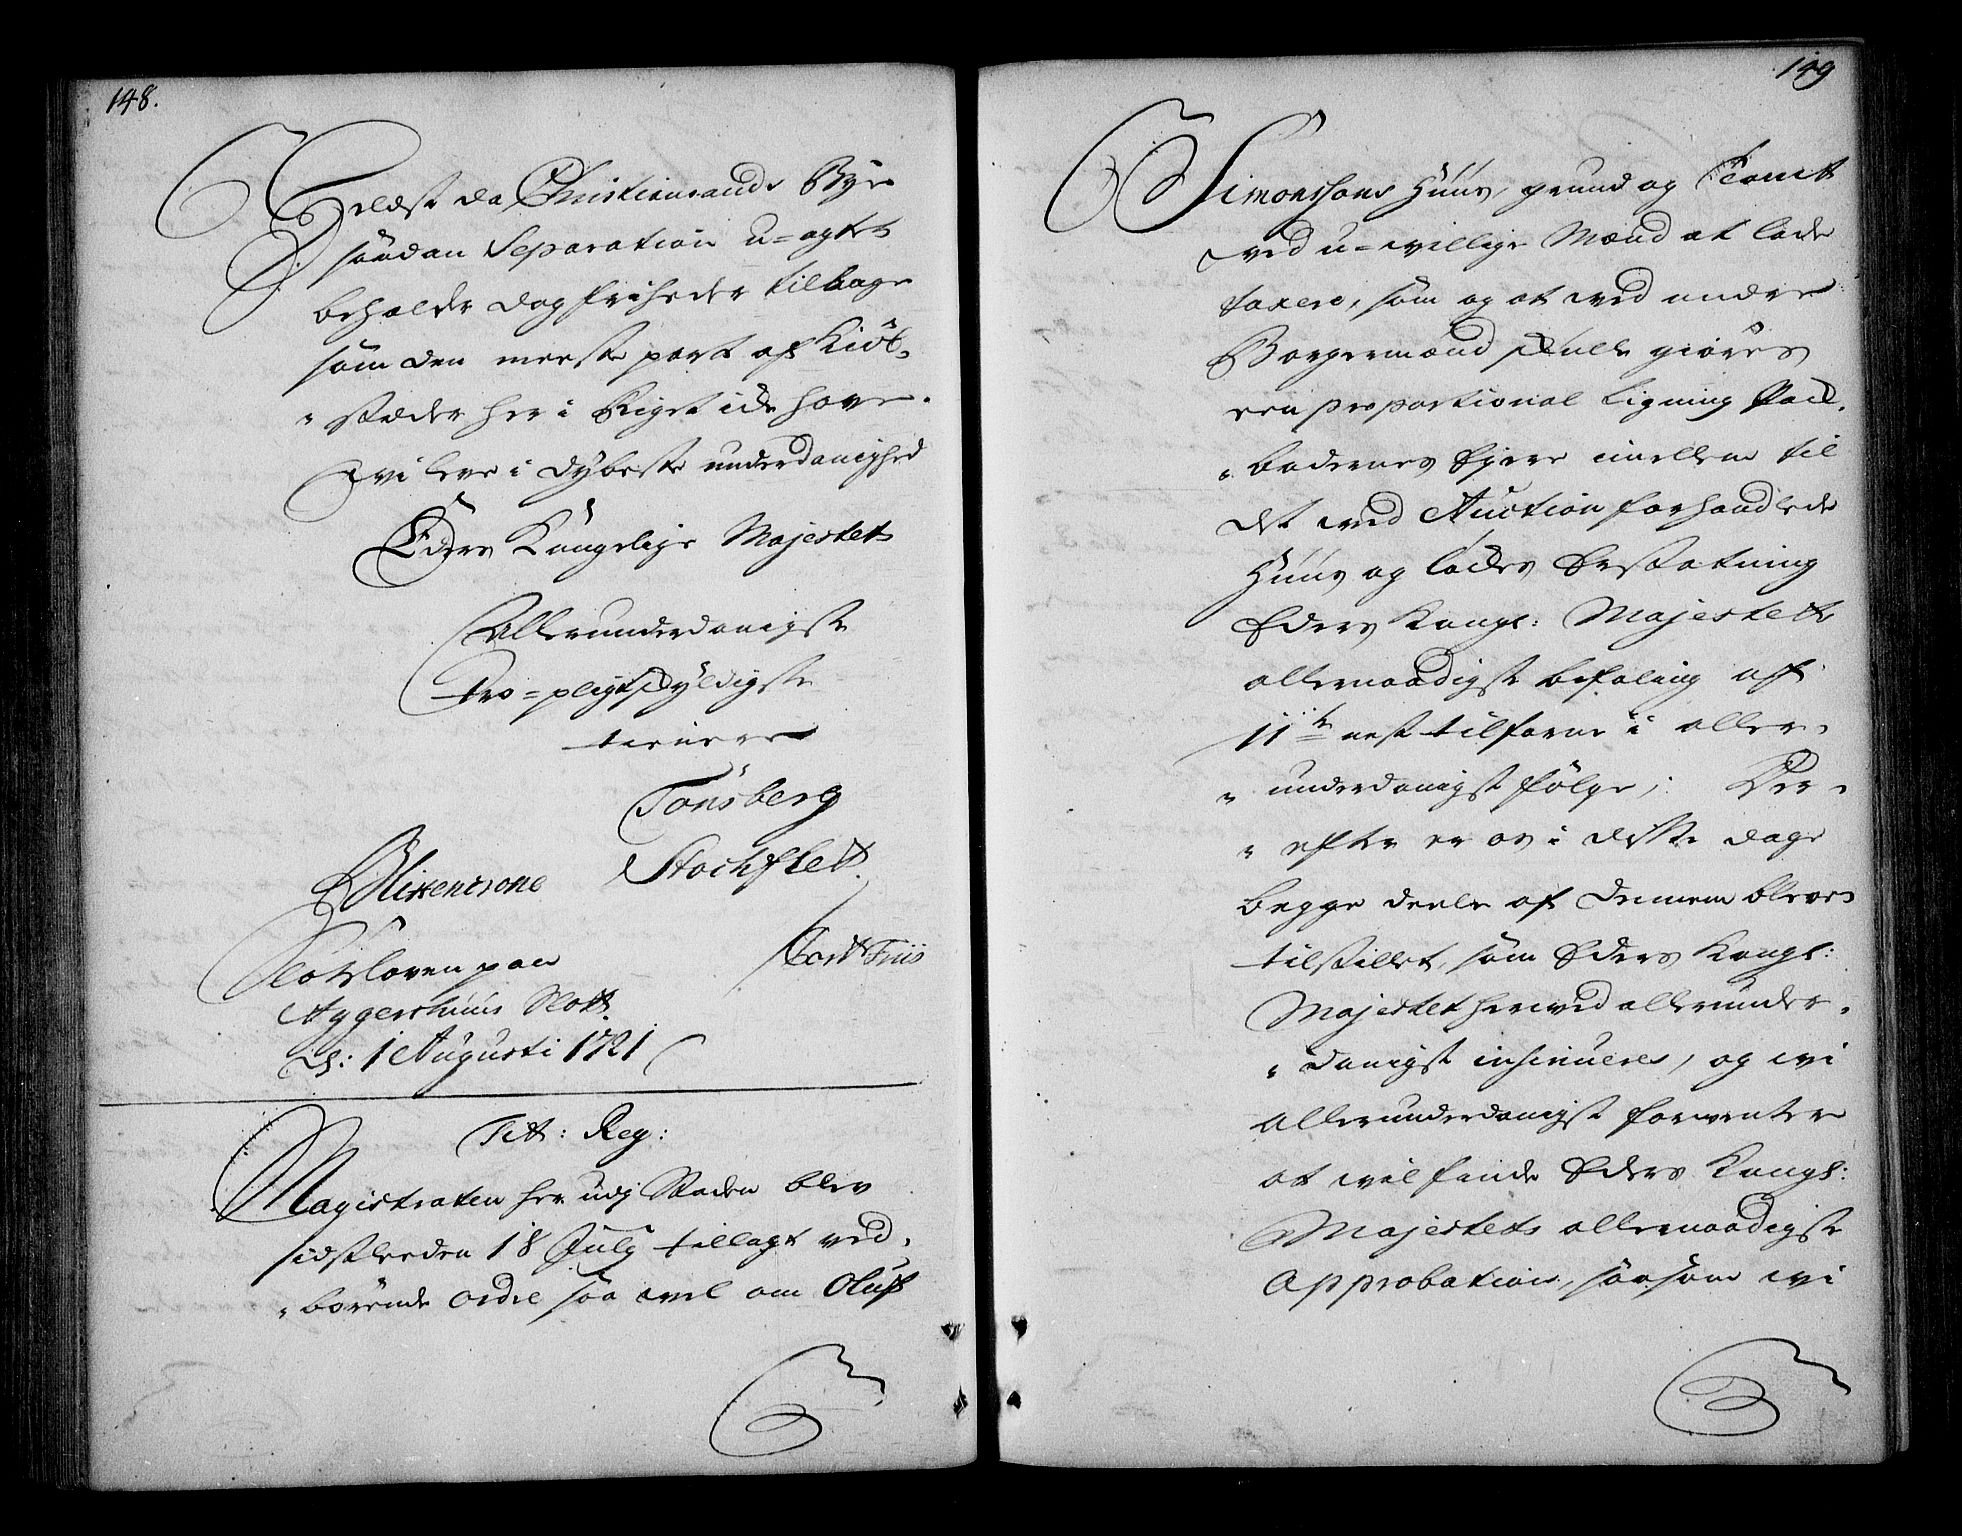 148.
helst da Christiansands Bÿe
saadan Separation u-agtet
beholder dog friheder tilbage
som den meeste part af Kiöb-
"stæder her i Riget ide have.
vi leve i dybeste underdanighed
Eders Kongelige Majestets
Allerunderdanigste
troe-pligtskÿldigste
tienere
Tonsberg
Stochflett
Nissen
Slotzloven paa
Aggershuus Slott
d: 1 Augusti 1721
Tordt Friis
Titt: Reg:
Magistraten her udj Staden blev
sidstleeden 18 Julÿ tillagt ved-
"börende ordre saa vel om Oluf
149
Simonssøns Huus, grund og
ved u-villige Mænd at lade
taxere, som og at ved andre
Borgermænd skulle giöres
een proportional Ligning
"bodernes Eÿere imellem til
det ved Auction forhandlede
Huus og lodes Erstatning
Eders Kongl: Majestets
allernaadigste befaling af
11te nest tilforne i aller-
"underdanigst fölge; Der-
"efter er os i disse dage
begge deele af dennem bleven
tilstillet, som Eders Kongl:
Majestet herved allerunder-
"danigst insinueres, og vi
allerunderdanigst forventer
at vil finde Eders Kongl:
Majestets allernaadigste
Approbation, saasom vi